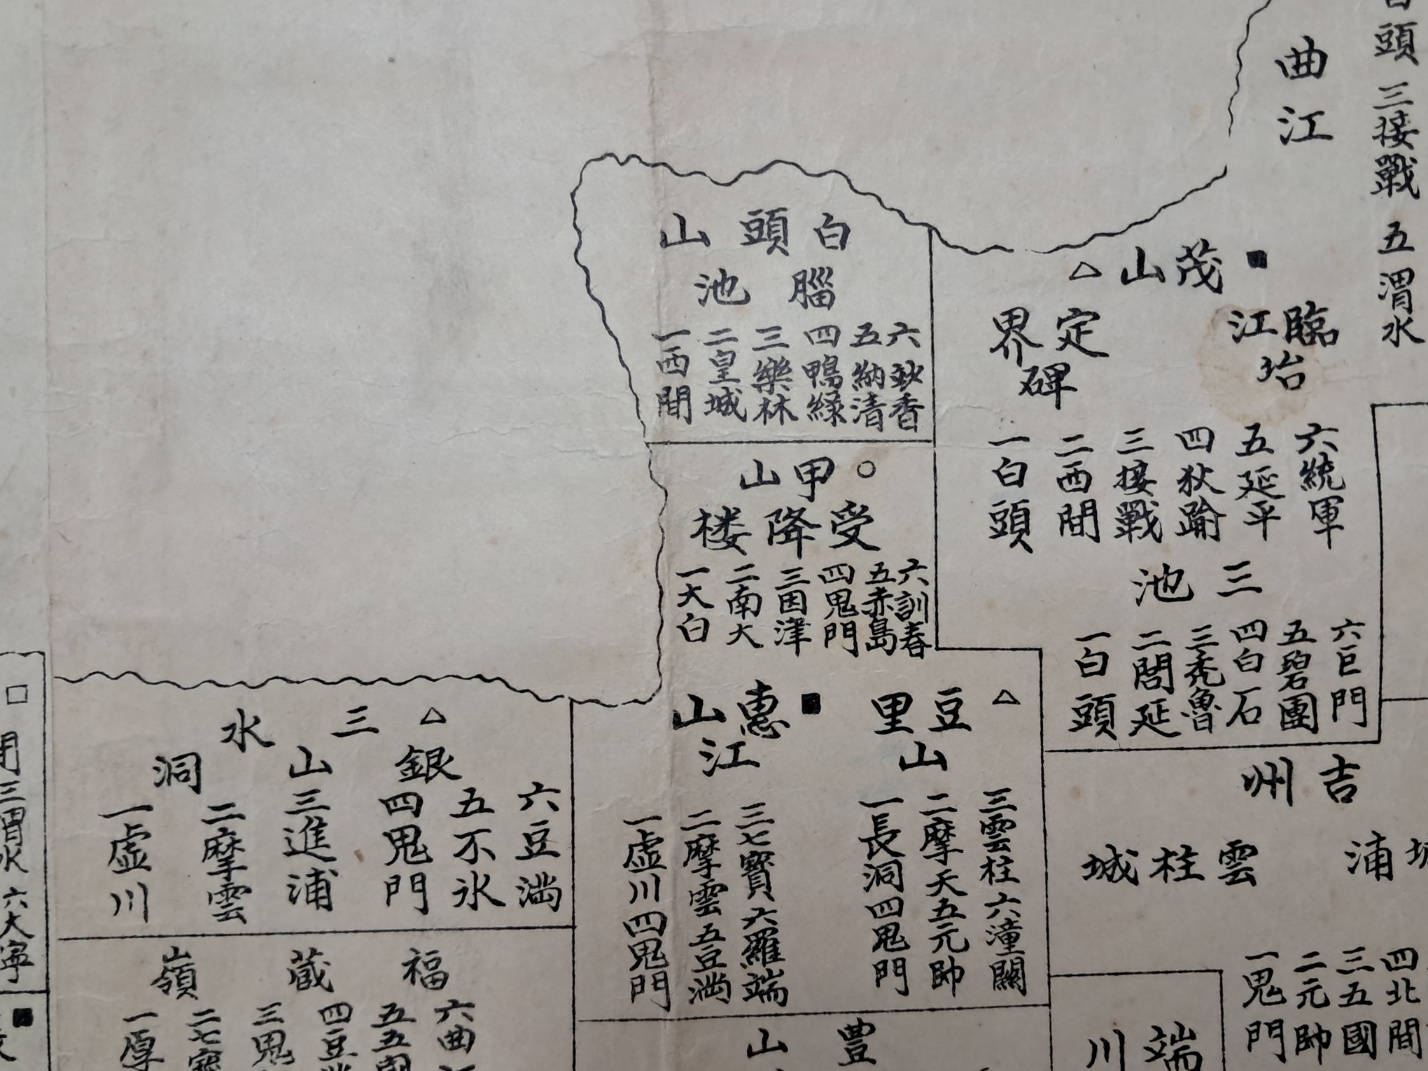 頭
三接戰
五渭水
曲江
茂山
臨江
定界碑
一白頭
二西間
三接戰
四狄踰
五延平
六統軍
三池
一白頭
二閻延
三禿魯
四白石
五碧團
六巨門
白頭山
腦池
一西間
二皇城
三樂林
四鴨綠
五納清
六鈥香
甲山
受降楼
一大白
二南大
三因津
四鬼門
五赤島
六訓春
豆里山
一長洞四鬼門
二摩天五元帥
三雲柱六潼關
惠山江
一虛川四鬼門
二摩雲五豆満
三七寶六羅端
三水
銀山洞
一虛川
二摩雲
三進浦
四鬼門
五不氷
六豆満
福蔵嶺
一厚
二七寶
三鬼
四豆
五五國
六曲
吉州
雲柱城
浦
一鬼門
二元帥
三五國
四北間
豊山
端川
三渭水
六大寧